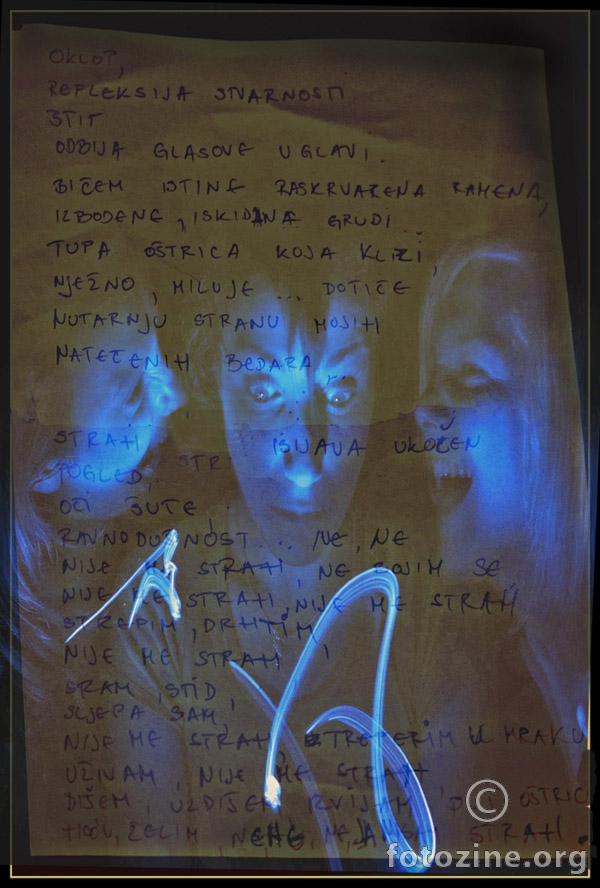 OKLOP,
REFLEKSIJA STVARNOSTI
ŠTIT
ODBIJA GLASOVE U GLAVI.
BIČEM ISTINE RASKRVARENA RAMENA,
IZBODENE, ISKIDANE GRUDI...
TUPA OŠTRICA KOJA KLIZI,
NJEŽNO, MILUJE ... DOTIČE
NUTARNJU STRANU MOJIH
NATEČENIH BEDARA...
STRAH ISIJAVA UKOČEN
POGLED,
OČI ŠUTE,
RAVNODUŠNOST... NE, NE
NIJE ME STRAH, NE BOJIM SE
NIJE ME STRAH, NIJE ME STRAH
STREPIM, DRHTIM
NIJE ME STRAH,
SRAM, STID,
SLIJEPA SAM,
NIJE ME STRAH, TREPERIM U MRAKU
UŽIVAM, NIJE ME STRAH
DIŠEM, UZDIŠEM, KRVIJAM, OŠTRIC
HOĆU, ŽELIM, STRAH.
© fotozine.org